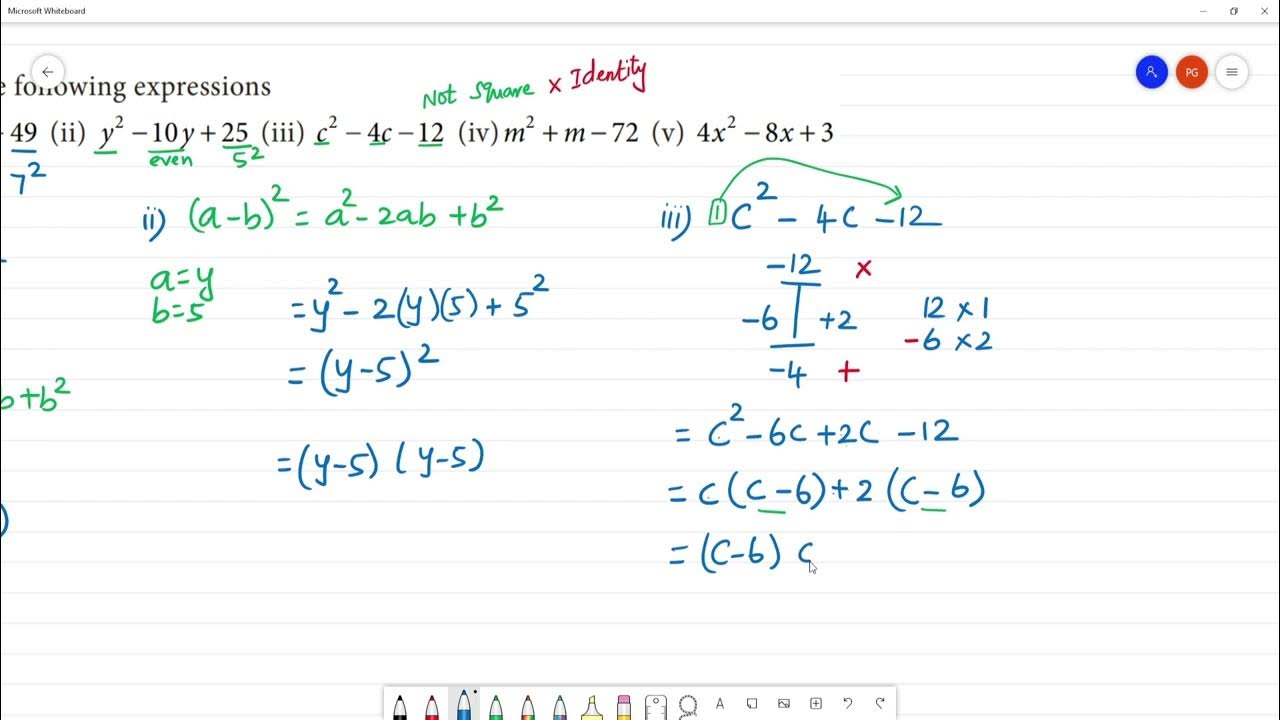 Microsoft Whiteboard
following expressions
Not Square × Identity
PG
49 (ii) y² − 10y + 25 (iii) c² − 4c − 12 (iv) m² + m − 72 (v) 4x² − 8x + 3
7²
even
5²
ii) (a-b)² = a² - 2ab + b²
a=y
b=5
= y² - 2(y)(5) + 5²
= (y-5)²
= (y-5) (y-5)
b+b²
)
iii) 1 C² - 4C - 12
-12 ×
-6 +2
-4 +
12 × 1
-6 × 2
= C² - 6C + 2C - 12
= C (C - 6) + 2 (C - 6)
= (C-6) C
A